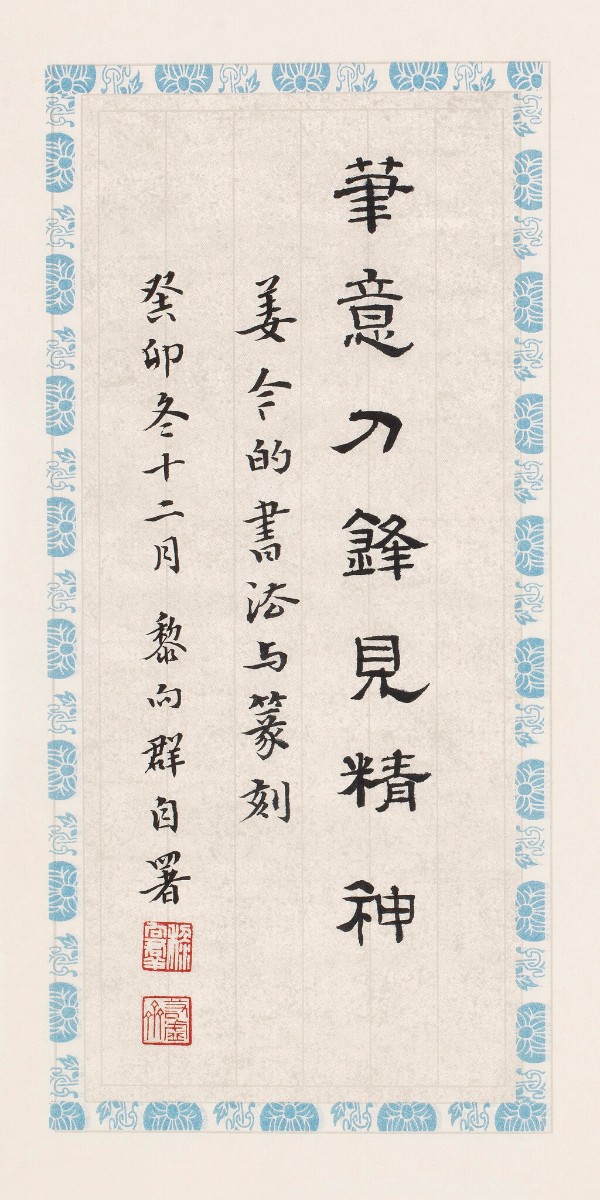 筆意刀鋒見精神
姜令的書法与篆刻
癸卯冬十二月 黎向群自署